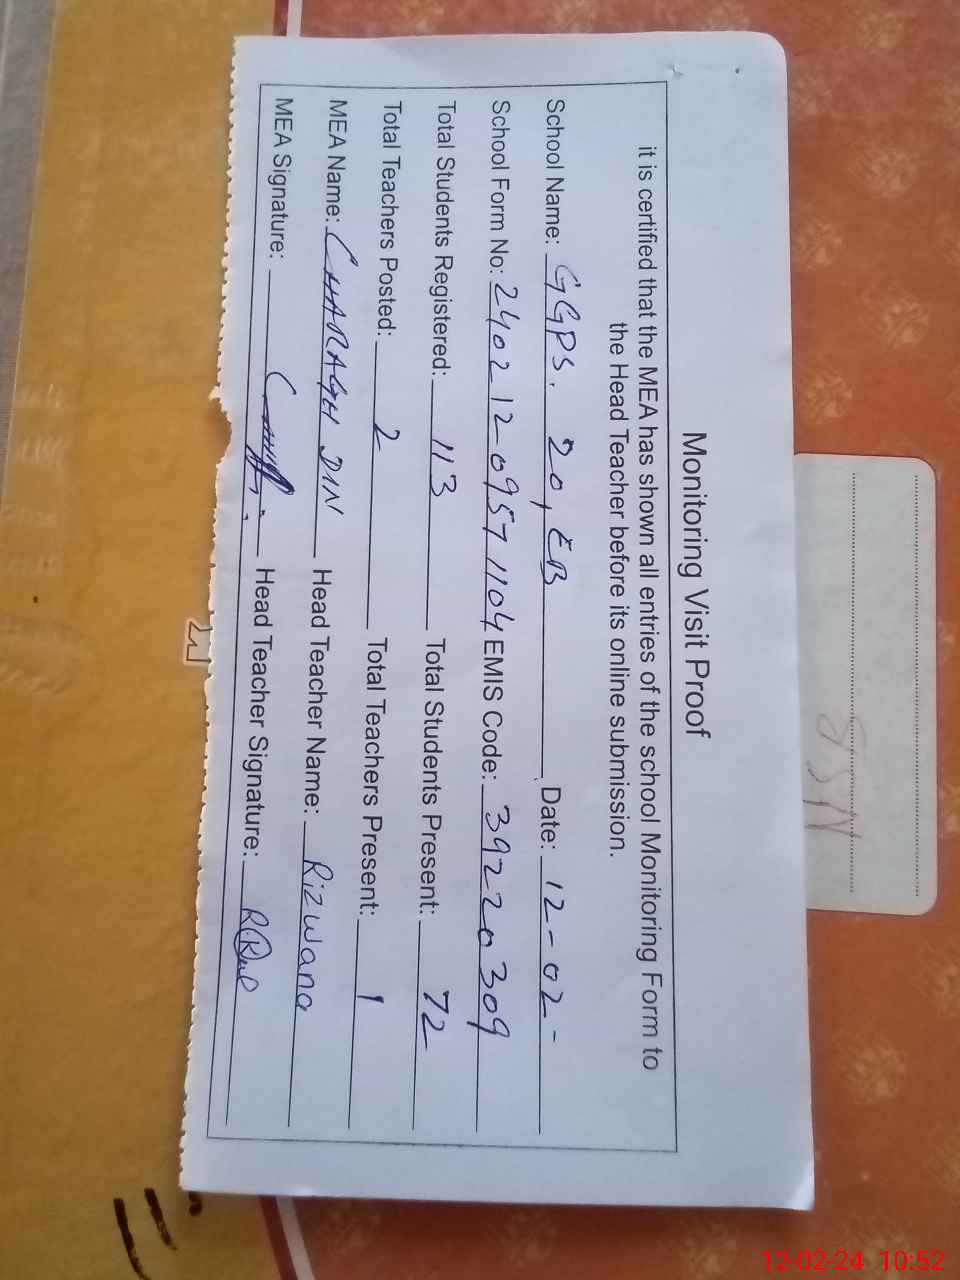 Monitoring Visit Proof
it is certified that the MEA has shown all entries of the school Monitoring Form to
the Head Teacher before its online submission.
School Name: GGPS. 20, EB Date: 12-02-
School Form No: 2402 12 0957 1104 EMIS Code: 39220309
Total Students Registered: 113 Total Students Present: 72
Total Teachers Posted: 2 Total Teachers Present: 1
MEA Name: CHARAGH DIN Head Teacher Name: Rizwana
MEA Signature: Head Teacher Signature:
12-02-24 10:52